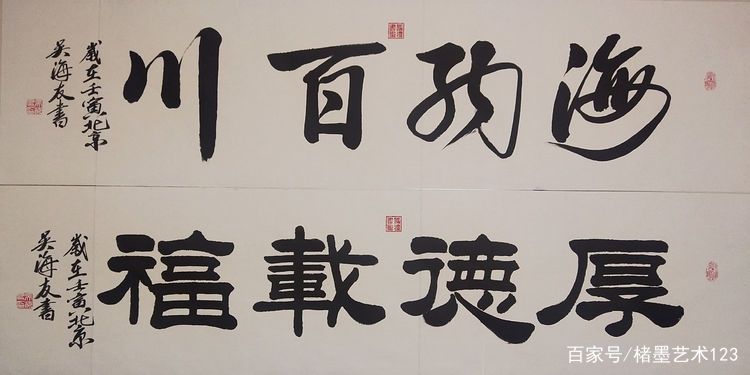 海纳百川
歲在壬寅北京
吴海友書
厚德載福
歲在壬寅北京
吴海友書
百家号/楮墨艺术123